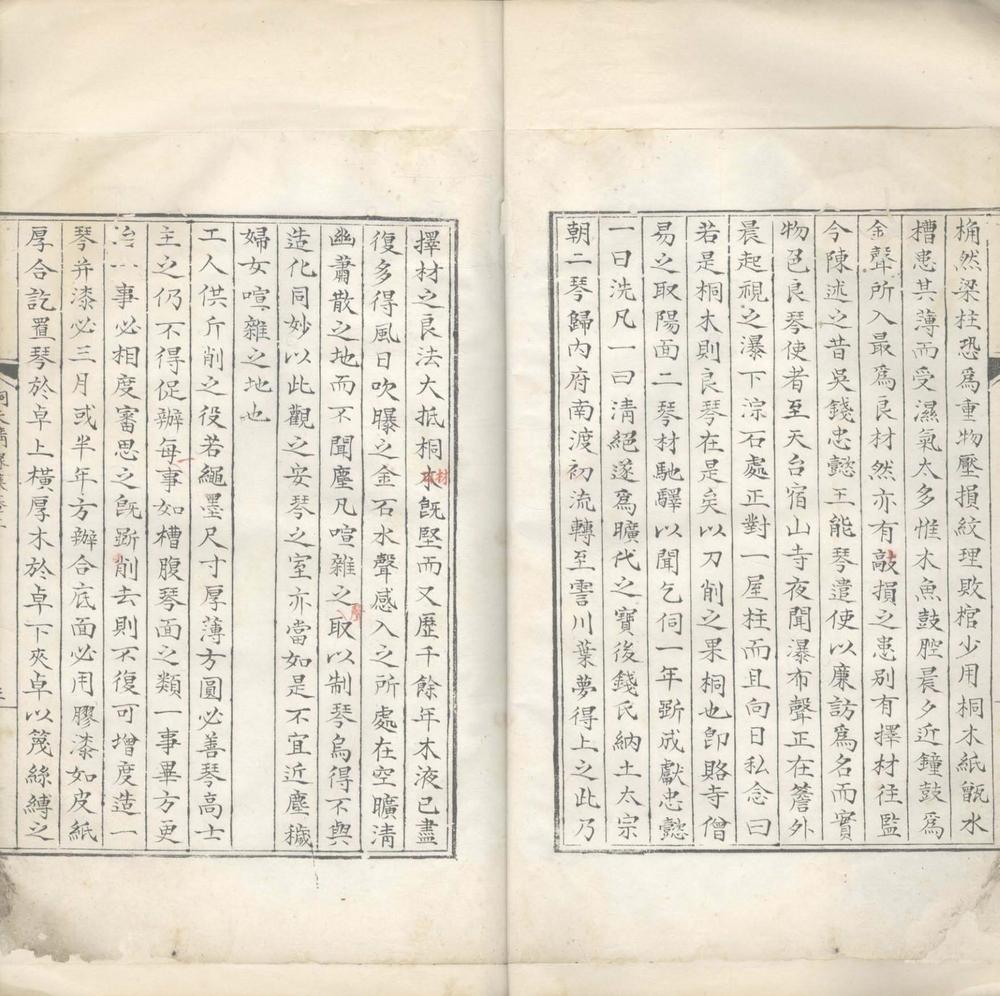 桷然梁柱恐爲重物壓損紋理敗棺少用桐木紙甑水
槽患其薄而受濕氣太多惟木魚鼓腔晨夕近鐘鼓爲
金聲所入最爲良材然亦有敲損之患别有擇材徃監
今陳述之昔吳錢忠懿王能琴遣使以廉訪爲名而實
物色良琴使者至天台宿山寺夜聞瀑布聲正在簷外
晨起視之瀑下淙石處正對一屋柱而且向日私念曰
若是桐木則良琴在是矣以刀削之果桐也卽賂寺僧
易之取陽面二琴材馳驛以聞乞伺一年斲成獻忠懿
一曰洗凡一曰清絕遂爲曠代之寶後錢氏納土太宗
朝二琴歸內府南渡初流轉至霅川葉夢得上之此乃
擇材之良法大抵桐木材既堅而又歷千餘年木液已盡
復多得風日吹曝之金石水聲感入之所處在空曠清
幽蕭散之地而不聞塵凡喧雜之聲取以制琴烏得不與
造化同妙以此觀之安琴之室亦當如是不宜近塵穢
婦女喧雜之地也
工人供斤削之役若繩墨尺寸厚薄方圓必善琴高士
主之仍不得促辦每一事如槽腹琴面之類一事畢方更
治事必相度審思之既斲削去則不復可增度造一
琴并漆必三月或半年方辦合底面必用膠漆如皮紙
厚合訖置琴於卓上橫厚木於卓下夾卓以篾絲縛之